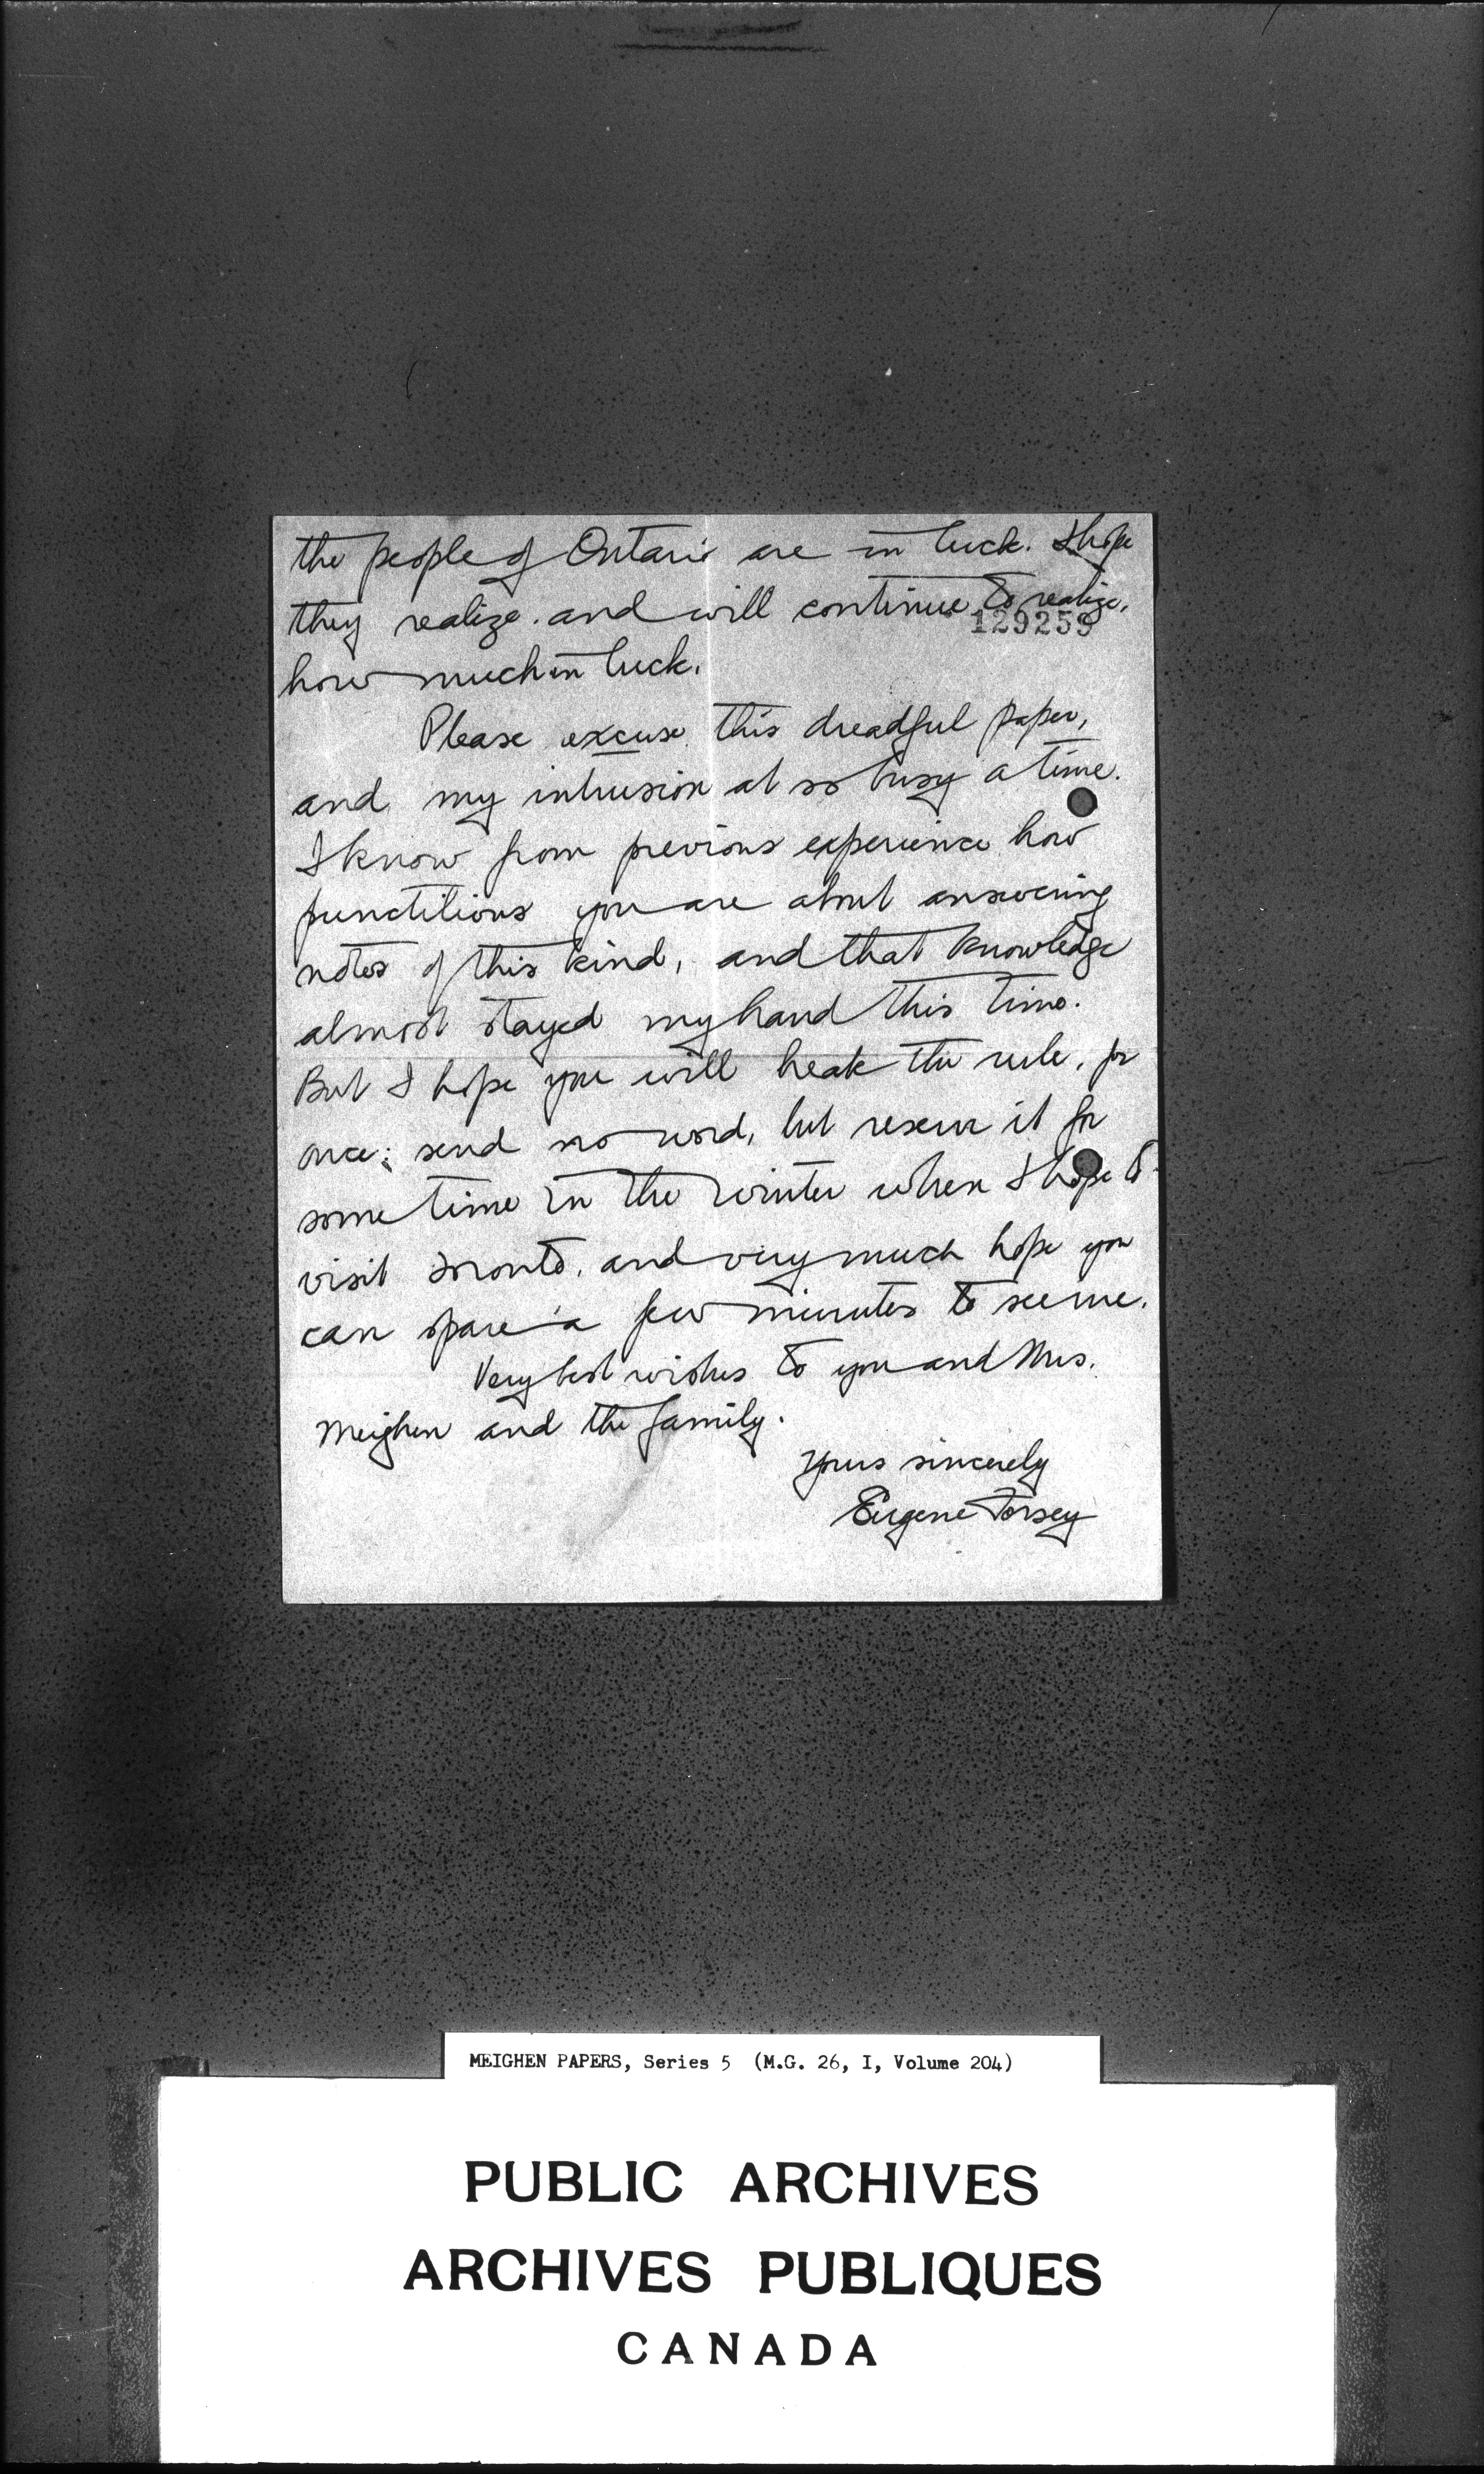 the people of Ontario are in luck. I hope
they realize, and will continue to realize,
129259
how much in luck.
Please excuse this dreadful paper,
and my intrusion at so busy a time.
I know from previous experience how
punctilious you are about answering
notes of this kind, and that knowledge
almost stayed my hand this time.
But I hope you will break the rule, for
once; send no word, but reserve it for
some time in the winter when I hope to
visit Toronto, and very much hope you
can spare a few minutes to see me.
Very best wishes to you and Mrs.
Meighen and the family.
Yours sincerely
Eugene Forsey
MEIGHEN PAPERS, Series 5 (M.G. 26, I, Volume 204)
PUBLIC ARCHIVES
ARCHIVES PUBLIQUES
CANADA